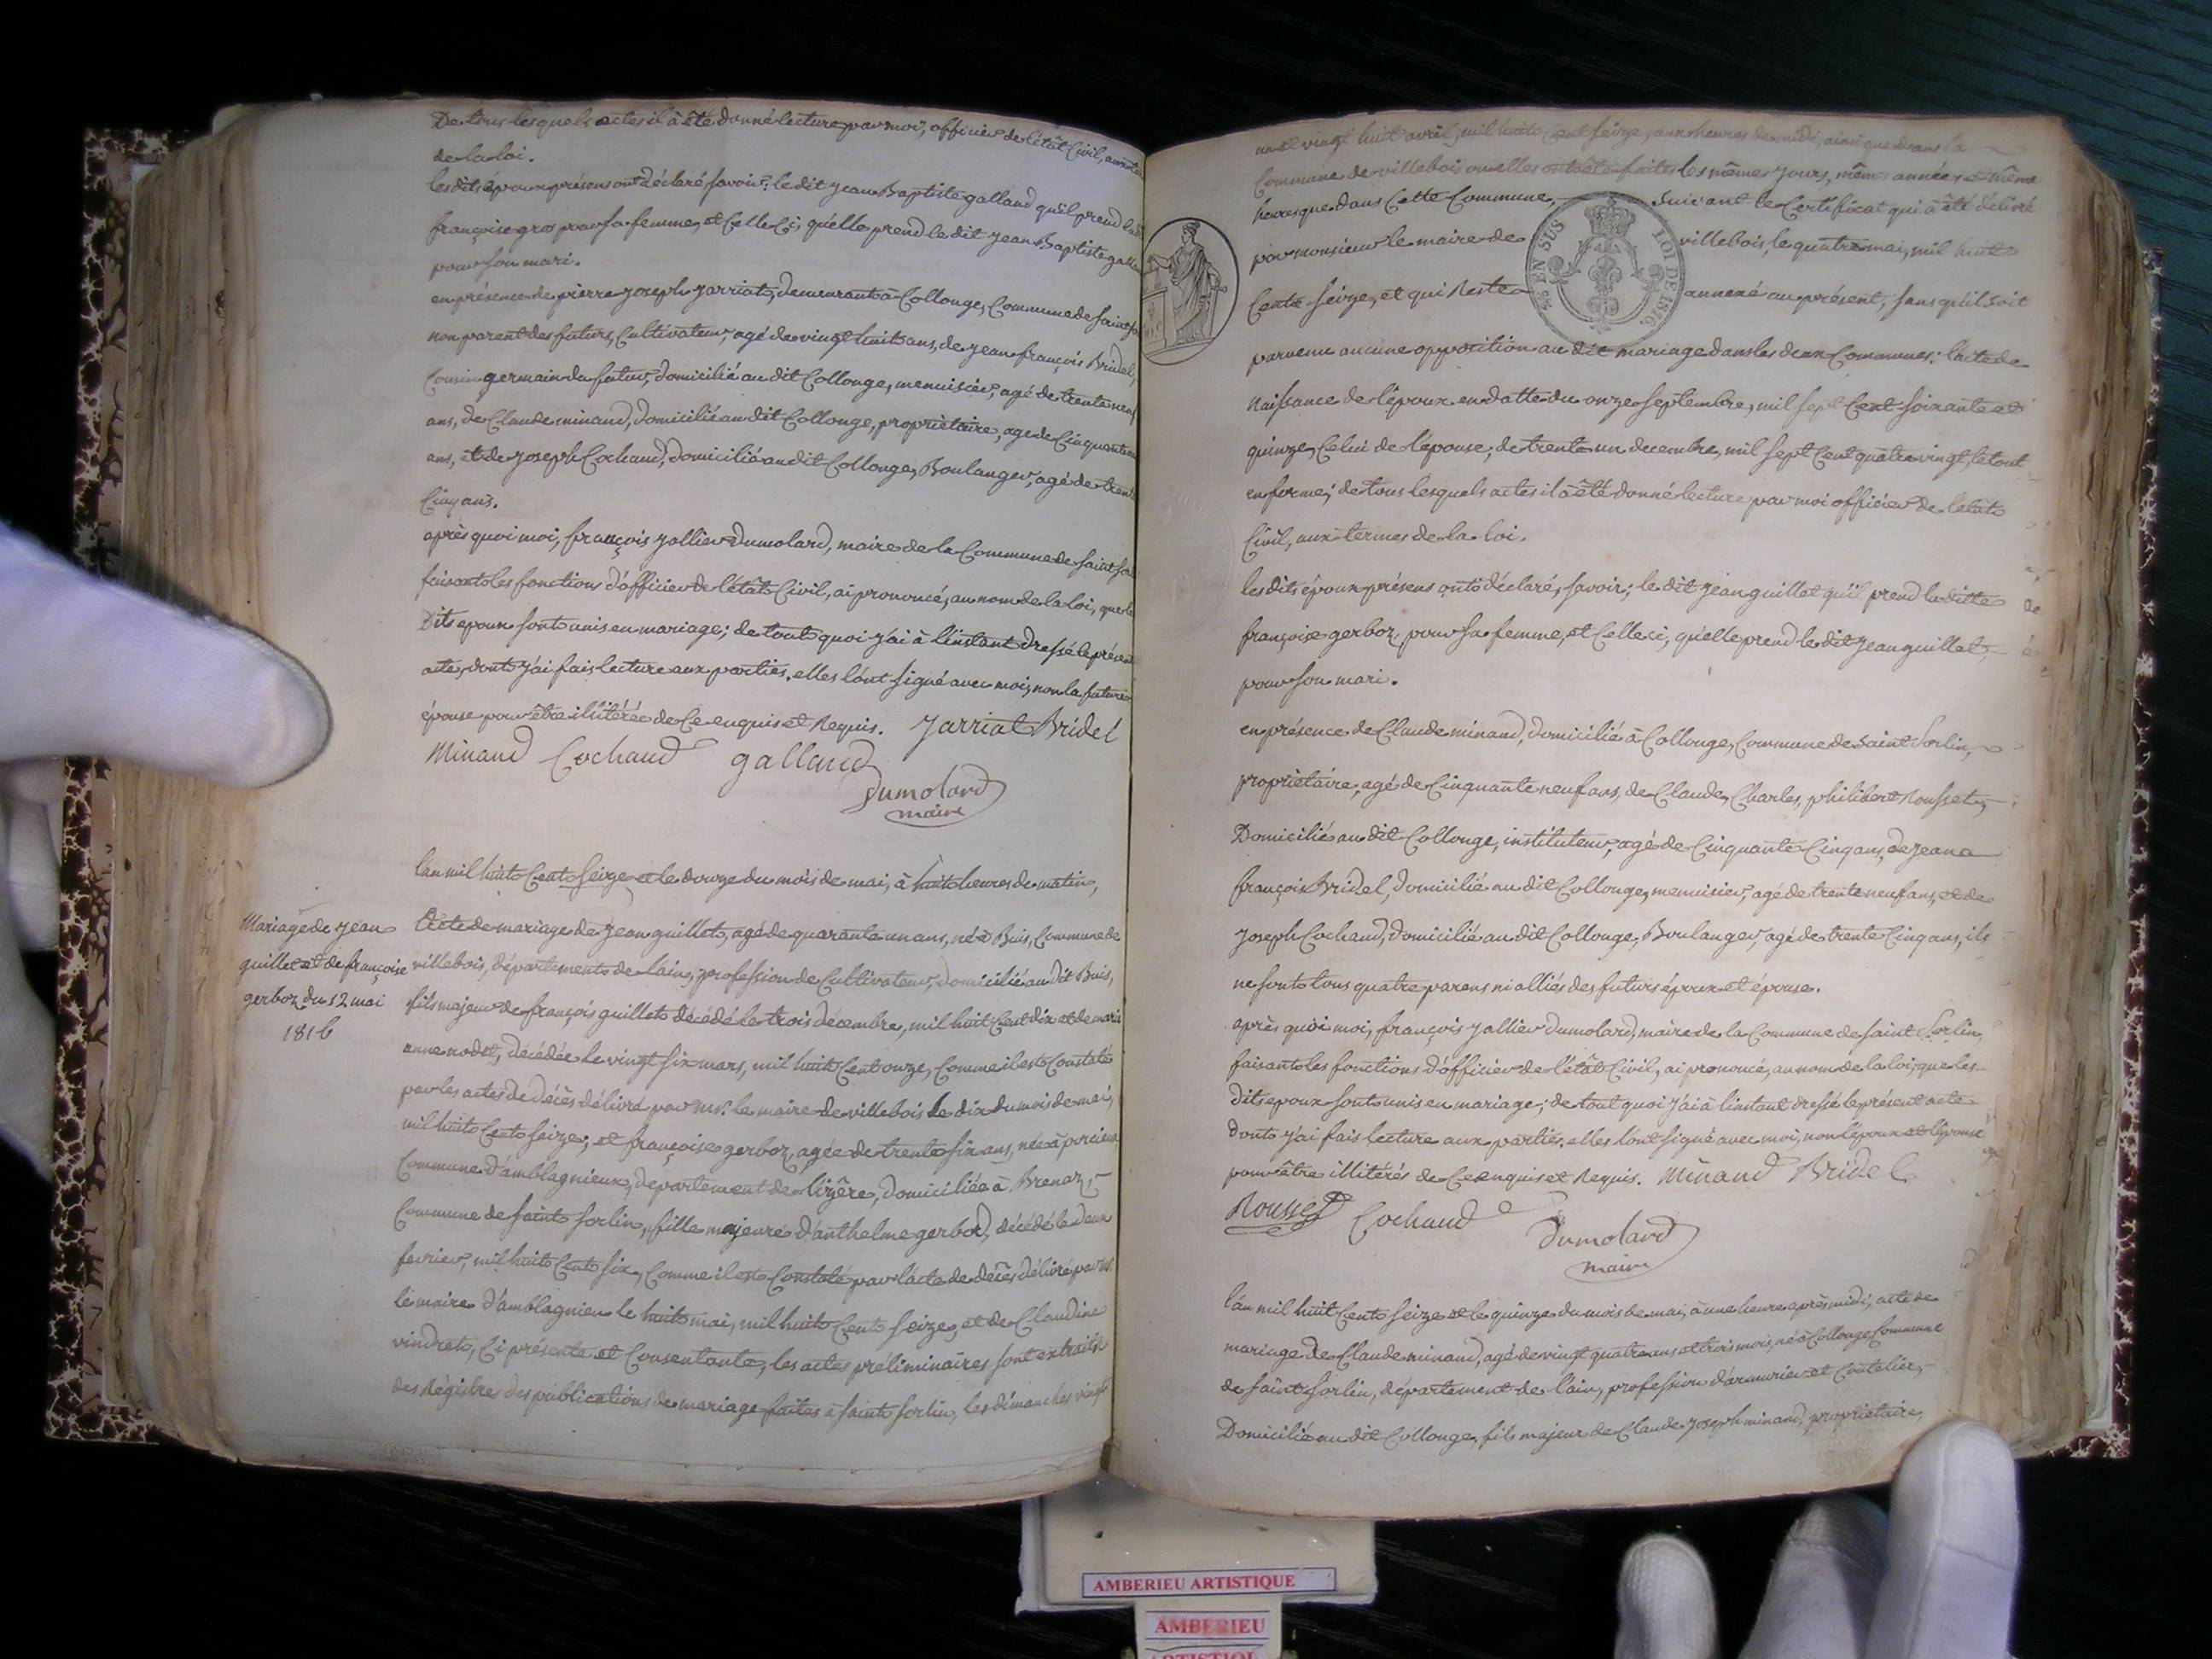 De tous lesquels actes il à êté donné lecture par moi, officier de l'êtât Civil, aux
de la loi.
les dits époux présens ont déclaré savoir; le dit jean Baptiste galland qu'il prend
françoise gros pour sa femme, et Celle Ci, qu'elle prend le dit jean Baptiste
pour son mari.
en présence de pierre joseph jarriat, demeurant à Collonge, Commune de saint
non parent des futurs, Cultivateur, agé de vingt huit ans, de jean françois Bridel,
Cousin germain du futur, domicilié au dit Collonge, menuisier, agé de trente neuf
ans, de Claude minand, domicilié au dit Collonge, propriétaire, agé de Cinquante
ans, et de joseph Cochand, domicilié au dit Collonge, Boulanger, agé de trente
Cinq ans.
après quoi moi, françois jallier dumolard, maire de la Commune de saint
faisant les fonctions d'officier de l'êtât Civil, ai prononcé, au nom de la loi, que les
Dits epoux sont unis en mariage; de tout quoi j'ai à l'instant dressé le présent
acte, dont j'ai fais lecture aux parties. elles l'ont signé avec moi, non la future
épouse pour être illitérée de Ce enquis et Requis. Jarriat Bridel
Minand Cochand galland
Dumolard
maire
l'an mil huit Cent seize et le douze du mois de mai, à huit heures du matin,
Mariage de jean
guillet et de françoise
gerboz du 12 mai
1816
Acte de mariage de jean guillet, agé de quarante un ans, né à Buis, Commune de
villebois, département de l'ain, profession de Cultivateur, domicilié au dit Buis,
fils majeur de françois guillet décédé le trois décembre, mil huit Cent dix et de marie
anne nodet, décédée le vingt six mars, mil huit Cent onze, Comme il est Constaté
par les actes de décès délivré par mr. le maire de villebois le dix du mois de mai,
mil huit Cent seize; et françoise gerboz, agée de trente six ans, née à porcieu
Commune d'amblagnieux, departement de lizère, domiciliée à Brenaz,
Commune de saint sorlin, fille majeure d'anthelme gerbod, décédé le deux
fevrier, mil huit Cent six, Comme il est Constaté par l'acte de décès délivré par mr.
le maire d'amblagnieu le huit mai, mil huit Cent seize, et de Claudine
vindret, Ci présente et Consentante, les actes préliminaires sont extraits
des Régistres des publications de mariage faites à saint sorlin, les dimanches vingt
un et vingt huit avril, mil huit Cent seize, aux heures de midi, ainsi que dans la
Commune de villebois ou elles ont êté faites les mêmes jours, mêmes années et même
heures que dans Cette Commune, suivant le Certificat qui à êté délivré
par monsieur le maire de villebois, le quatre mai, mil huit
Cent seize, et qui Reste annexé au présent, sans qu'il soit
25 EN SUS LOI DE 1816
parvenu aucune opposition au dit mariage dans les deux Communes: l'acte de
naissance de l'époux en datte du onze septembre, mil sept Cent soixante et
quinze, Celui de l'épouse, de trente un decembre, mil sept Cent quatre vingt, le tout
en forme; de tous lesquels actes il à êté donné lecture par moi officier de l'êtât
Civil, aux termes de la loi.
les dits époux présens ont déclaré, savoir; le dit jean guillet qu'il prend la ditte
françoise gerboz, pour sa femme, et Celle ci, qu'elle prend le dit jean guillet,
pour son mari.
en présence de Claude minand, domicilié à Collonge, Commune de saint Sorlin,
propriétaire, agé de Cinquante neuf ans, de Claude, Charles, philibert Rousset,
Domicilié au dit Collonge, instituteur, agé de Cinquante Cinq ans, de jean
françois Bridel, domicilié au dit Collonge, menuisier, agé de trente neuf ans, et de
joseph Cochand, domicilié au dit Collonge, Boulanger, agé de trente Cinq ans, ils
ne sont tous quatre parens ni alliés des futurs époux et épouse.
après quoi moi, françois jallier dumolard, maire de la Commune de saint Sorlin,
faisant les fonctions d'officier de l'êtât Civil, ai prononcé, au nom de la loi, que les
dits epoux sont unis en mariage; de tout quoi j'ai à l'instant dressé le présent acte
dont j'ai fais lecture aux parties. elles l'ont signé avec moi, non l'époux et l'épouse
pour être illitérés de Ce enquis et Requis. Minand Bridel
Rousset Cochand
Dumolard
maire
l'an mil huit Cent seize et le quinze du mois de mai, à une heure après midi, acte de
mariage de Claude minand, agé de vingt quatre ans et trois mois, né à Collonge Commune
de saint sorlin, département de l'ain, profession d'armurier et Coutelier,
Domicilié au dit Collonge, fils majeur de Claude joseph minand, propriétaire,
AMBERIEU ARTISTIQUE
AMBERIEU
ARTISTIQUE